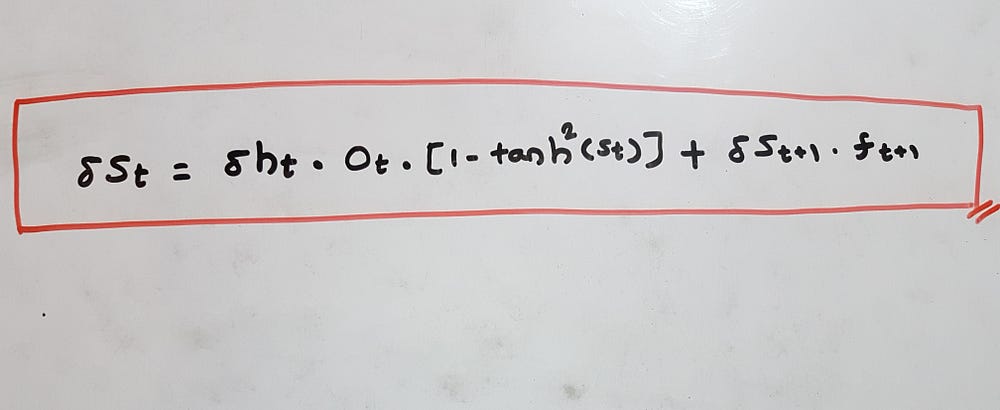 δSt = δht · Ot · [1 - tanh²(St)] + δSt+1 · ft+1